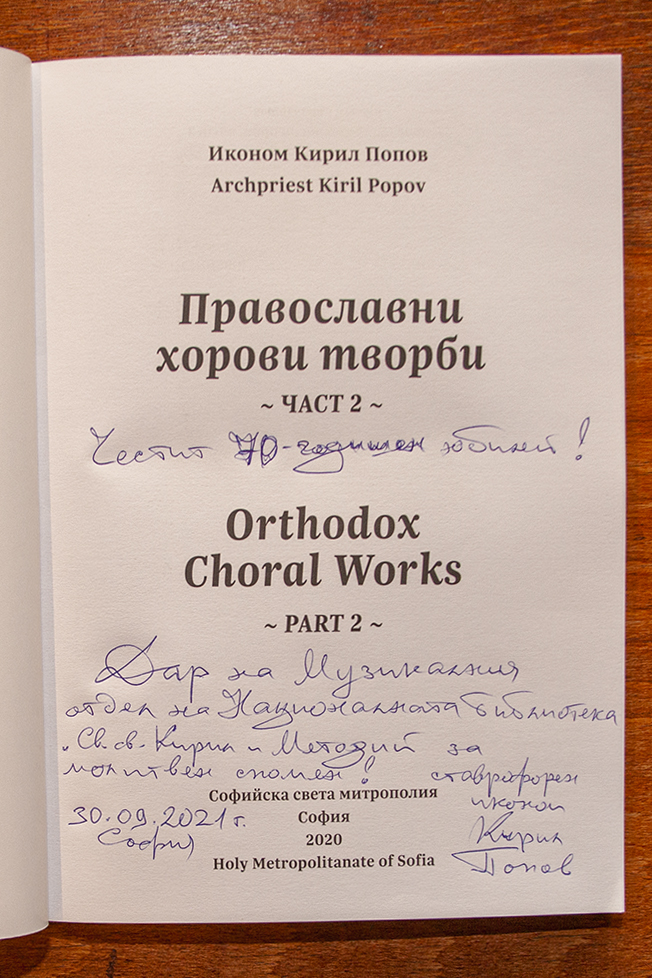 Иконом Кирил Попов
Archpriest Kiril Popov
Православни
хорови творби
~ ЧАСТ 2 ~
Честит 70-годишен юбилей!
Orthodox
Choral Works
~ PART 2 ~
Дар на Музикалния
отдел на Националната библиотека
„Св. св. Кирил и Методий за
молитвен спомен!
ставрофорен
иконом
Кирил
Попов
30.09.2021 г.
София
Софийска света митрополия
София
2020
Holy Metropolitanate of Sofia